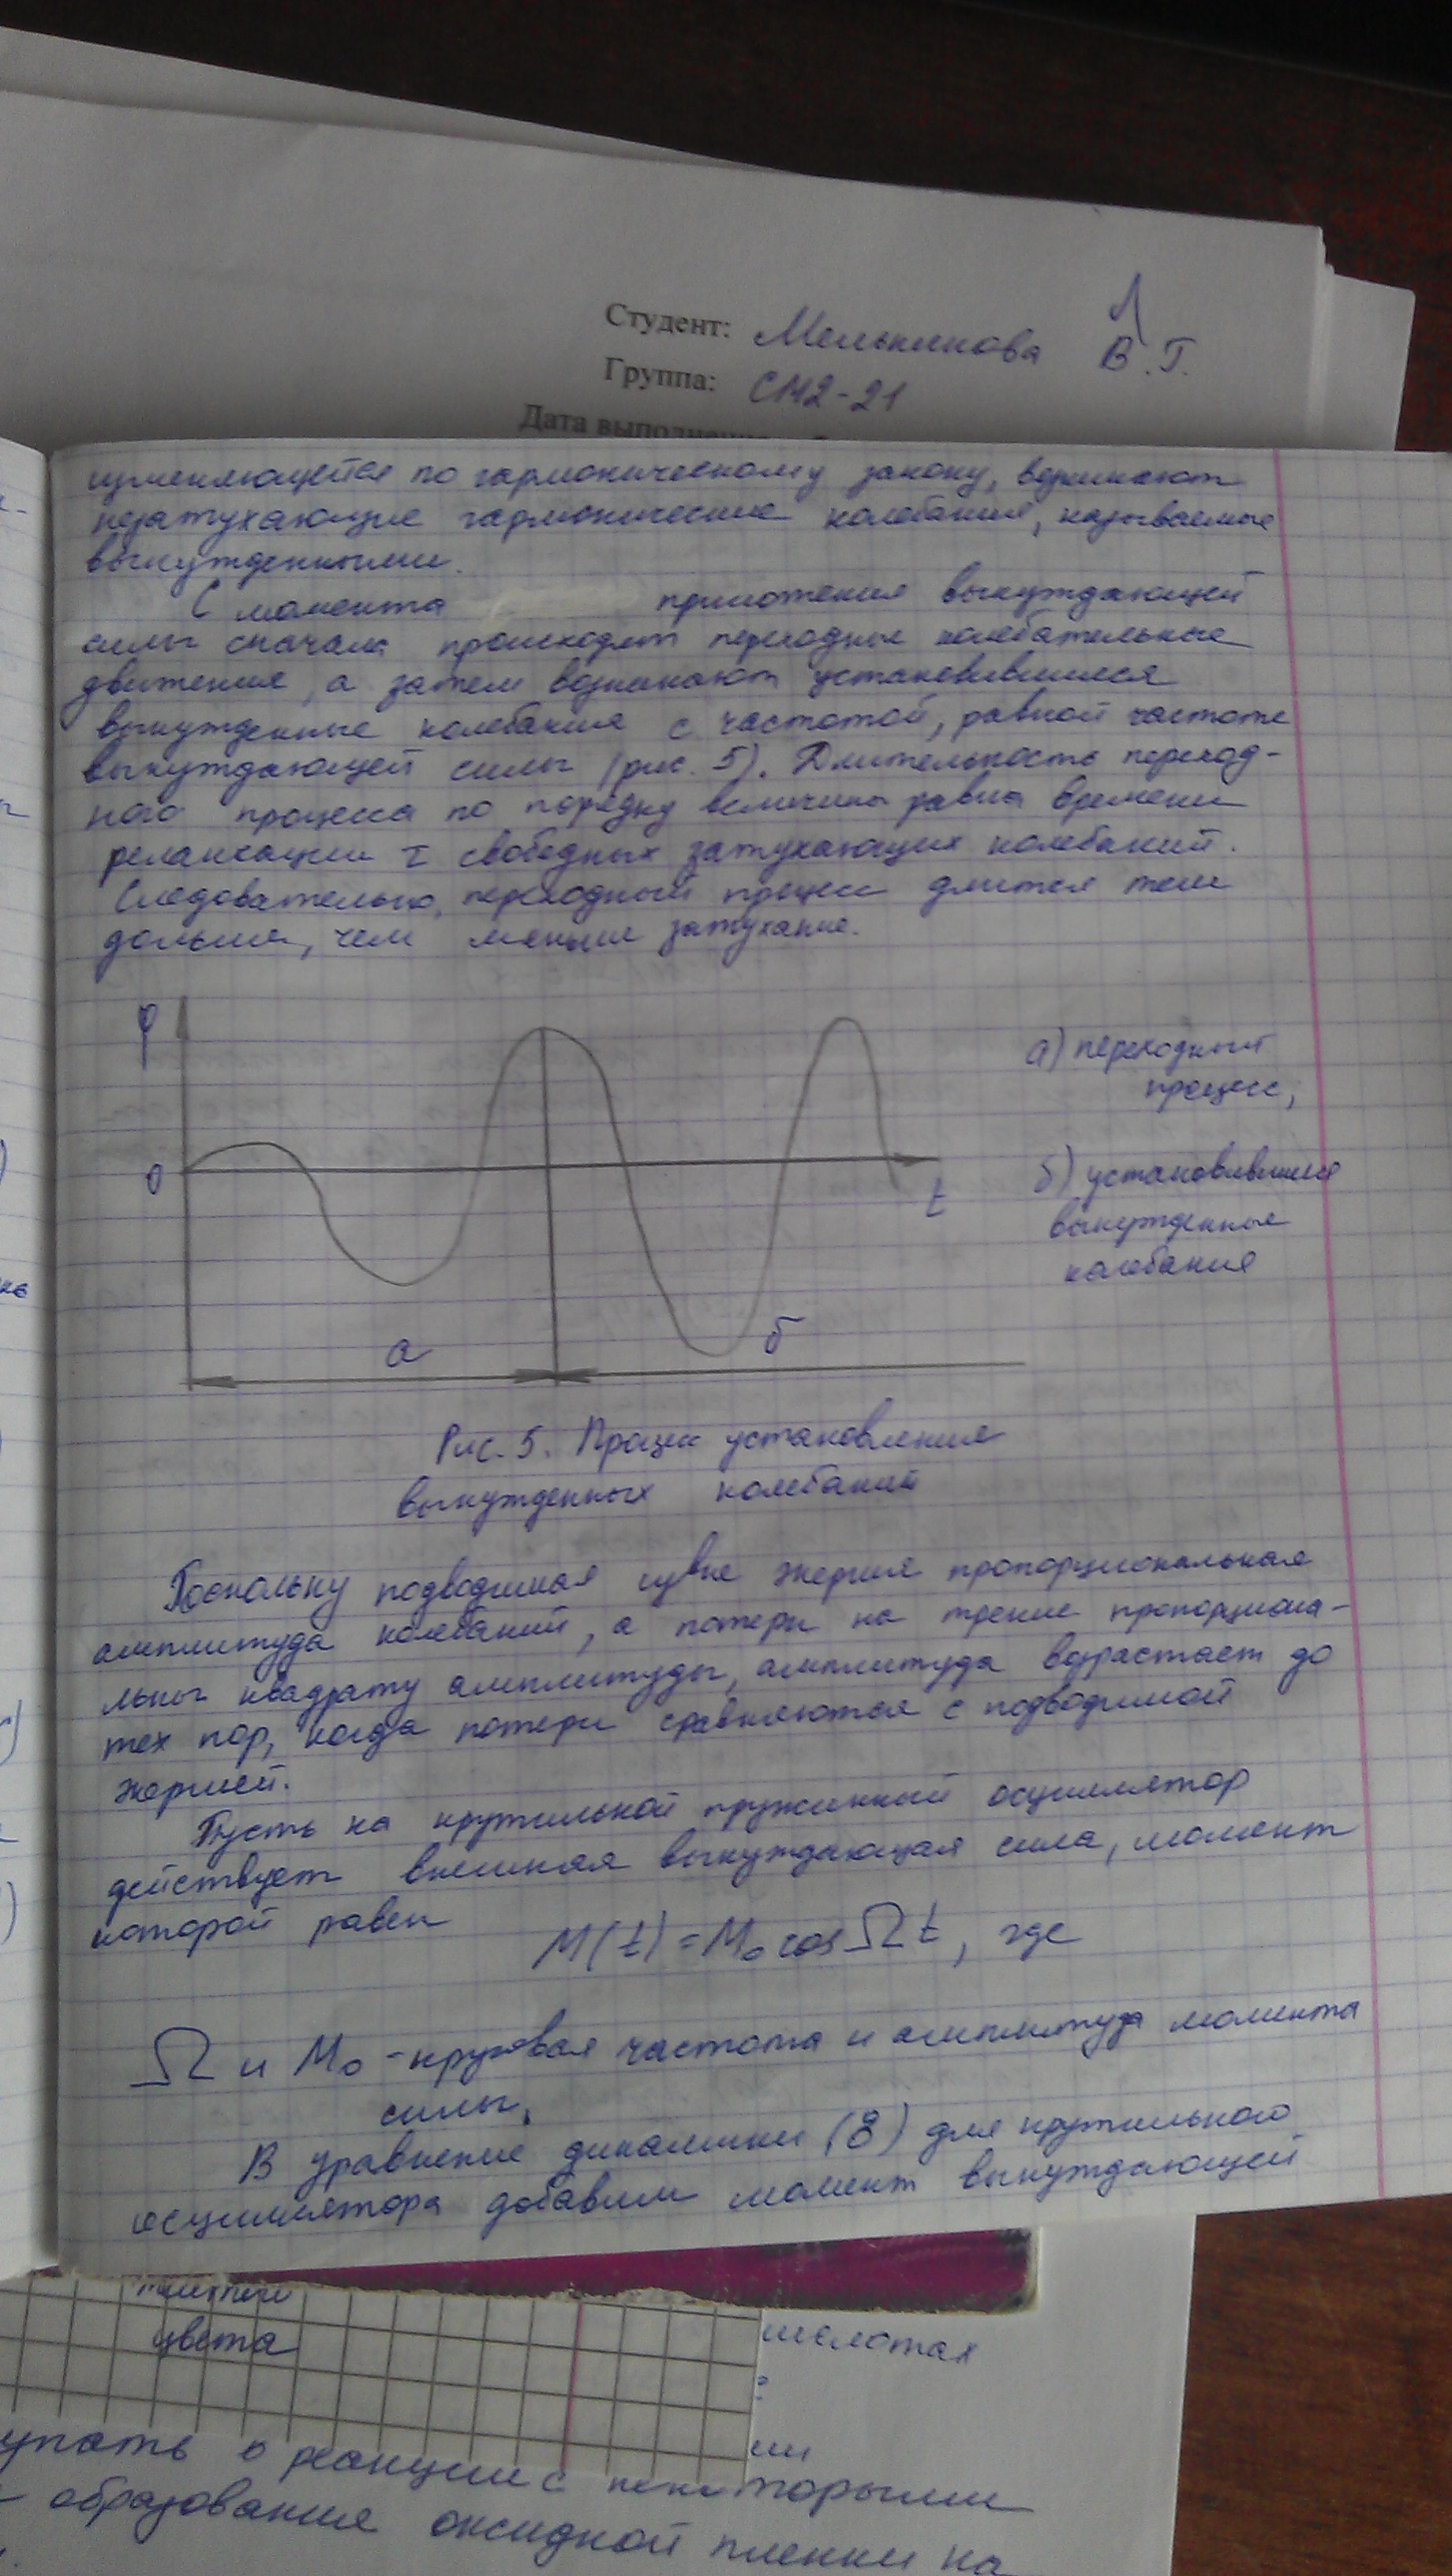 Студент: Мельникова В.Г.
Группа: СМ2-21
Дата выполнения
изменяющейся по гармоническому закону, возникают
незатухающие гармонические колебания, называемые
вынужденными.
С момента приложения вынуждающей
силы сначала происходят переходные колебательные
движения, а затем возникают установившиеся
вынужденные колебания с частотой, равной частоте
вынуждающей силы (рис. 5). Длительность переход-
ного процесса по порядку величины равна времени
релаксации τ свободных затухающих колебаний.
Следовательно, переходный процесс длится тем
дольше, чем меньше затухание.
φ
а) переходный
процесс,
0
t
б) установившиеся
вынужденные
колебания
а
б
Рис. 5. Процесс установления
вынужденных колебаний
Поскольку подводимая извне энергия пропорциональная
амплитуда колебаний, а потери на трение пропорциона-
льны квадрату амплитуды, амплитуда возрастает до
тех пор, когда потери сравняются с подводимой
энергией.
Пусть на крутильной пружинный осциллятор
действует внешняя вынуждающая сила, момент
которой равен
M(t) = M₀ cos Ωt, где
Ω и M₀ - круговая частота и амплитуда момента
силы.
В уравнение динамики (8) для крутильного
осциллятора добавим момент вынуждающей
цвета
кислотах
упать в реакции с некоторыми
образования оксидной пленки на